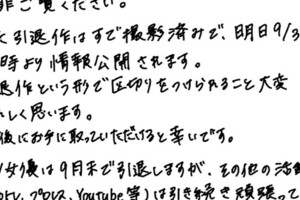 非ご覧ください。
く引退作はすで撮影済みで、明日9/3
時より情報公開されます。
退作という形で区切りをつけられること大変
しく思います。
後にお手に取っていただけると幸いです。
女優は9月末で引退しますが、その他の活
プロレス、Youtube等)は引き続き頑張って